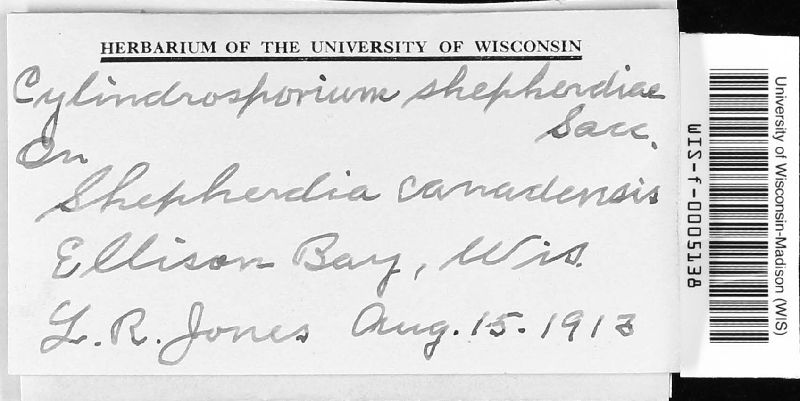 HERBARIUM OF THE UNIVERSITY OF WISCONSIN
Cylindrosporium shepherdiae
Sacc.
On
Shepherdia canadensis
Ellison Bay, Wis.
L. R. Jones Aug. 15. 1913
University of Wisconsin-Madison (WIS)
WIS-f-0005138